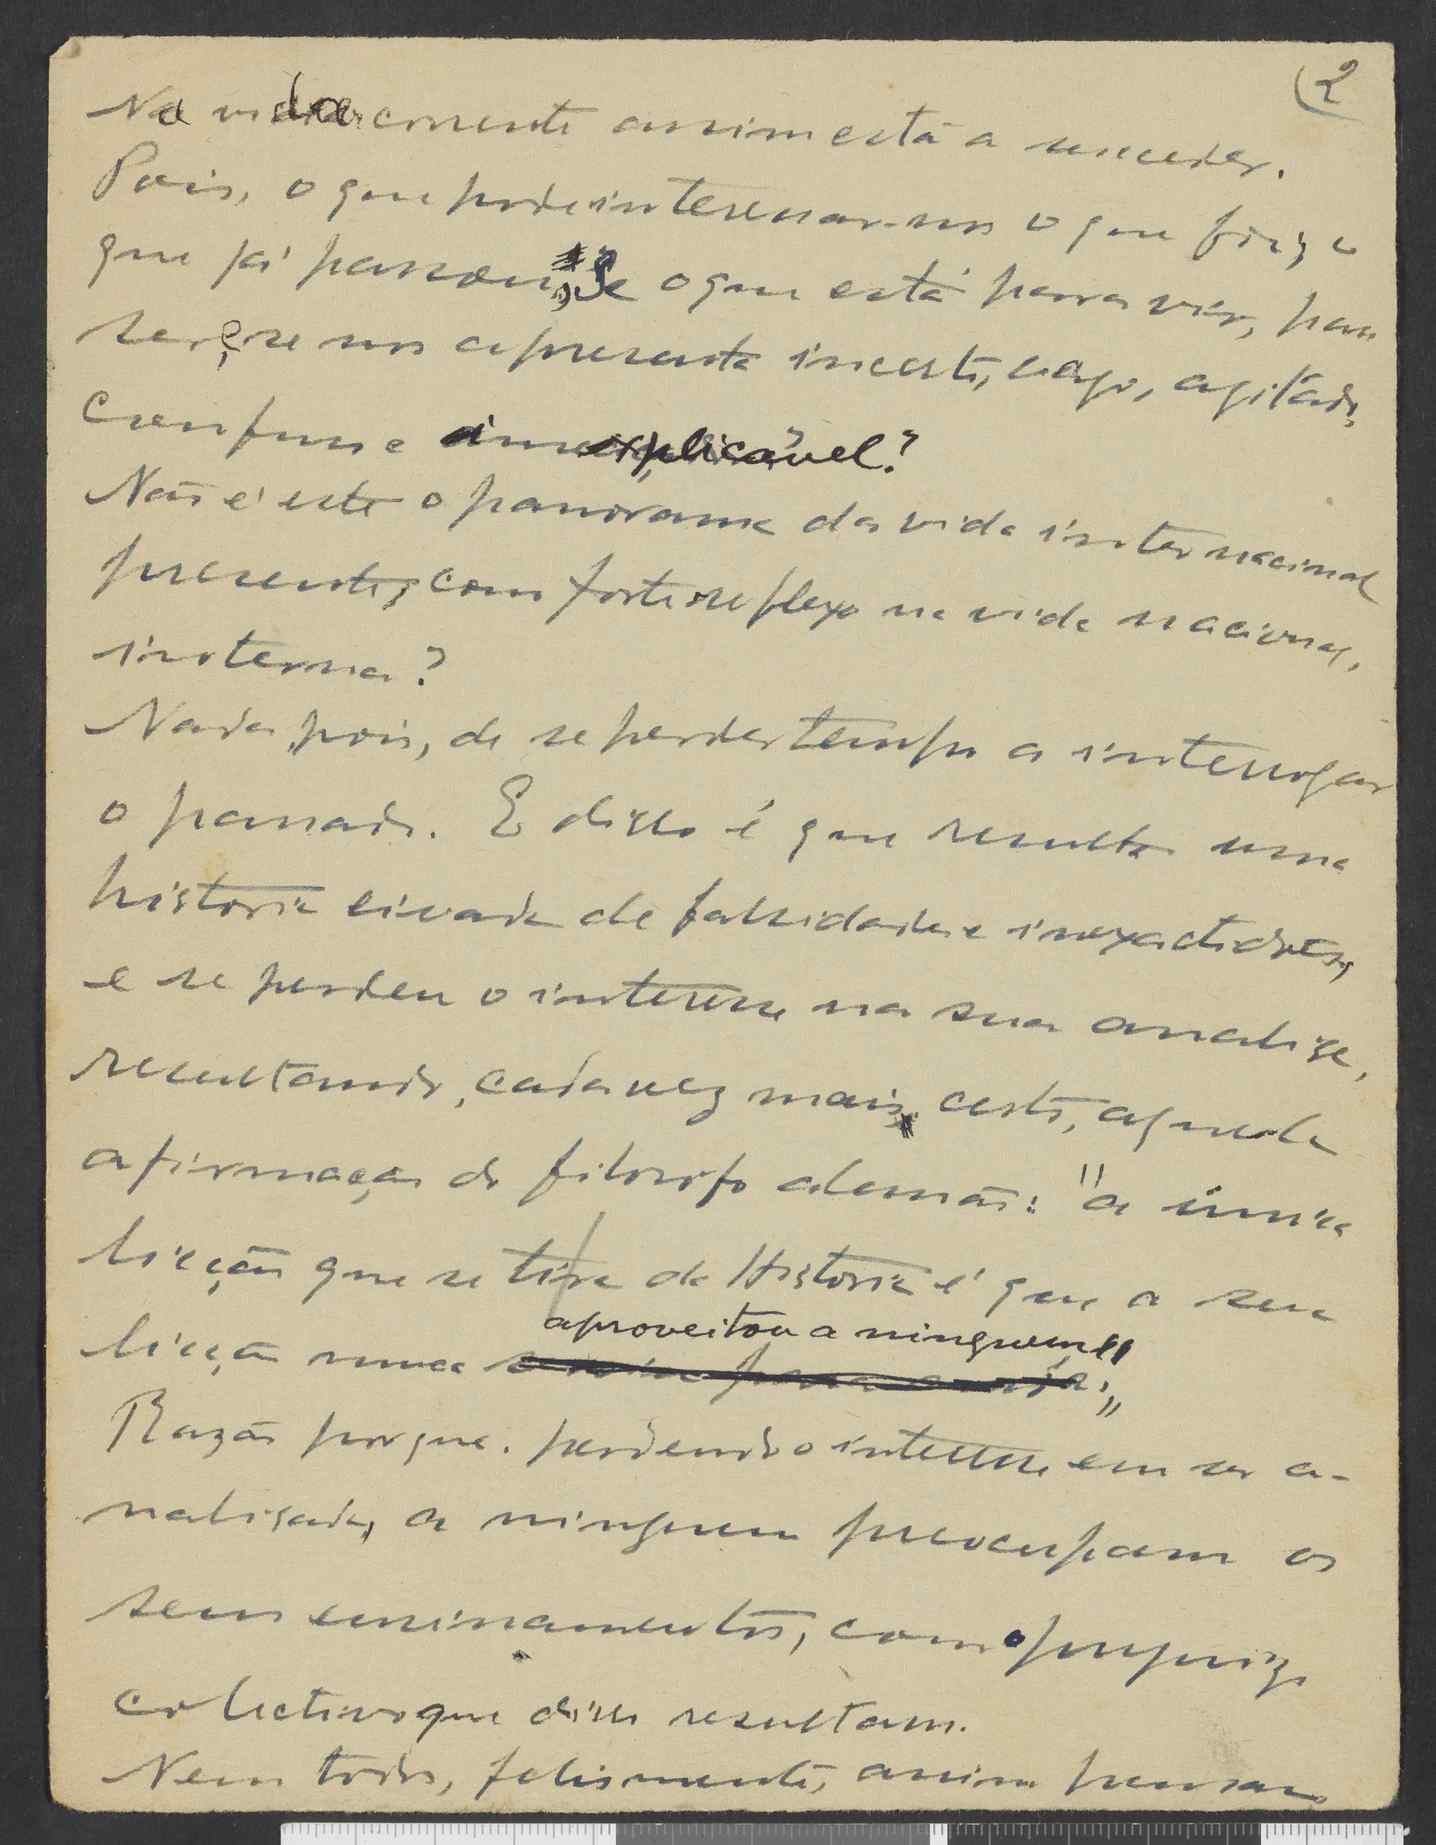 2
Na vida corrente assim está a suceder.
Pois, o que pode interessar-nos o que foi, o
que já passou, se o que está para vir, para
ser, se nos apresenta incerto, vago, agitado,
confuso e inexplicável?
Não é este o panorama da vida internacional
presente, com forte reflexo na vida nacional,
interna?
Nada, pois, de se perder tempo a interrogar
o passado. E disso é que resulta uma
historia eivada de falsidades e inexactidões,
e se perdeu o interesse na sua analise,
resultando, cada vez mais, certo, aquela
afirmação do filosofo alemão: "a única
licção que se tira da Historia é que a sua
licção nunca aproveitou a ninguem"
Razão porque, perdendo o interesse em ser a-
nalisada, a ninguem preocupam os
seus ensinamentos, com o prejuizo
colectivo que disso resultam.
Nem todos, felismente, assim pensam